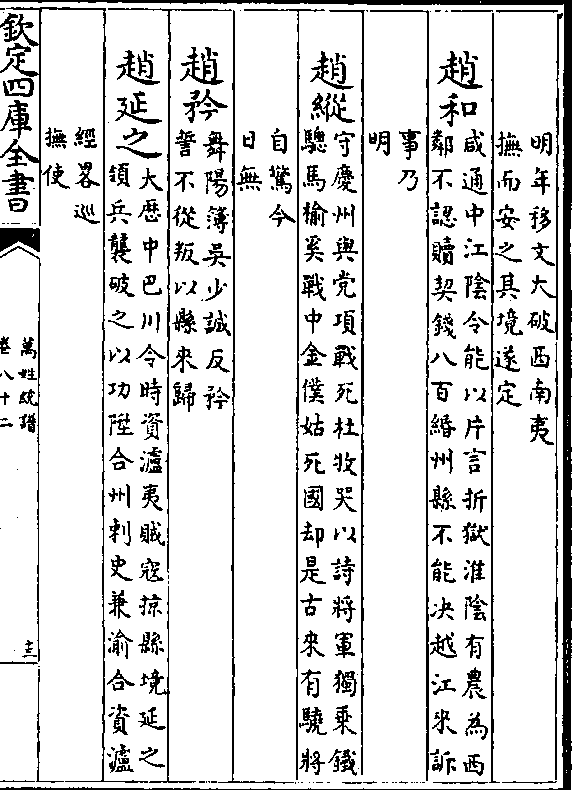 明年移文大破西南夷
撫而安之其境遂定
趙和咸通中江陰令能以片言折獄淮陰有農為西
鄰不認贖契錢八百緡州縣不能决越江来訴
事乃
明
趙縱守慶州與党項戰死杜牧哭以詩將軍獨乗鐵
驄馬榆奚戰中金僕姑死國却是古來有驍將
自驚今
日無
趙矜舞陽簿吳少誠反矜
誓不從叛以縣来歸
趙延之大歴中巴川令時資瀘夷賊寇掠縣境延之
領兵襲破之以功陞合州刺史兼渝合資瀘
經畧巡
撫使
欽定四庫全書
萬姓統譜
卷八十二
十三